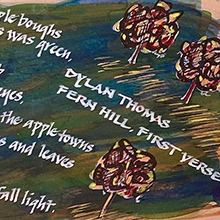 ple boughs
s was green,
eyes,
the apple-towns
s and leaves
fall light.
DYLAN THOMAS
FERN HILL, FIRST VERSE